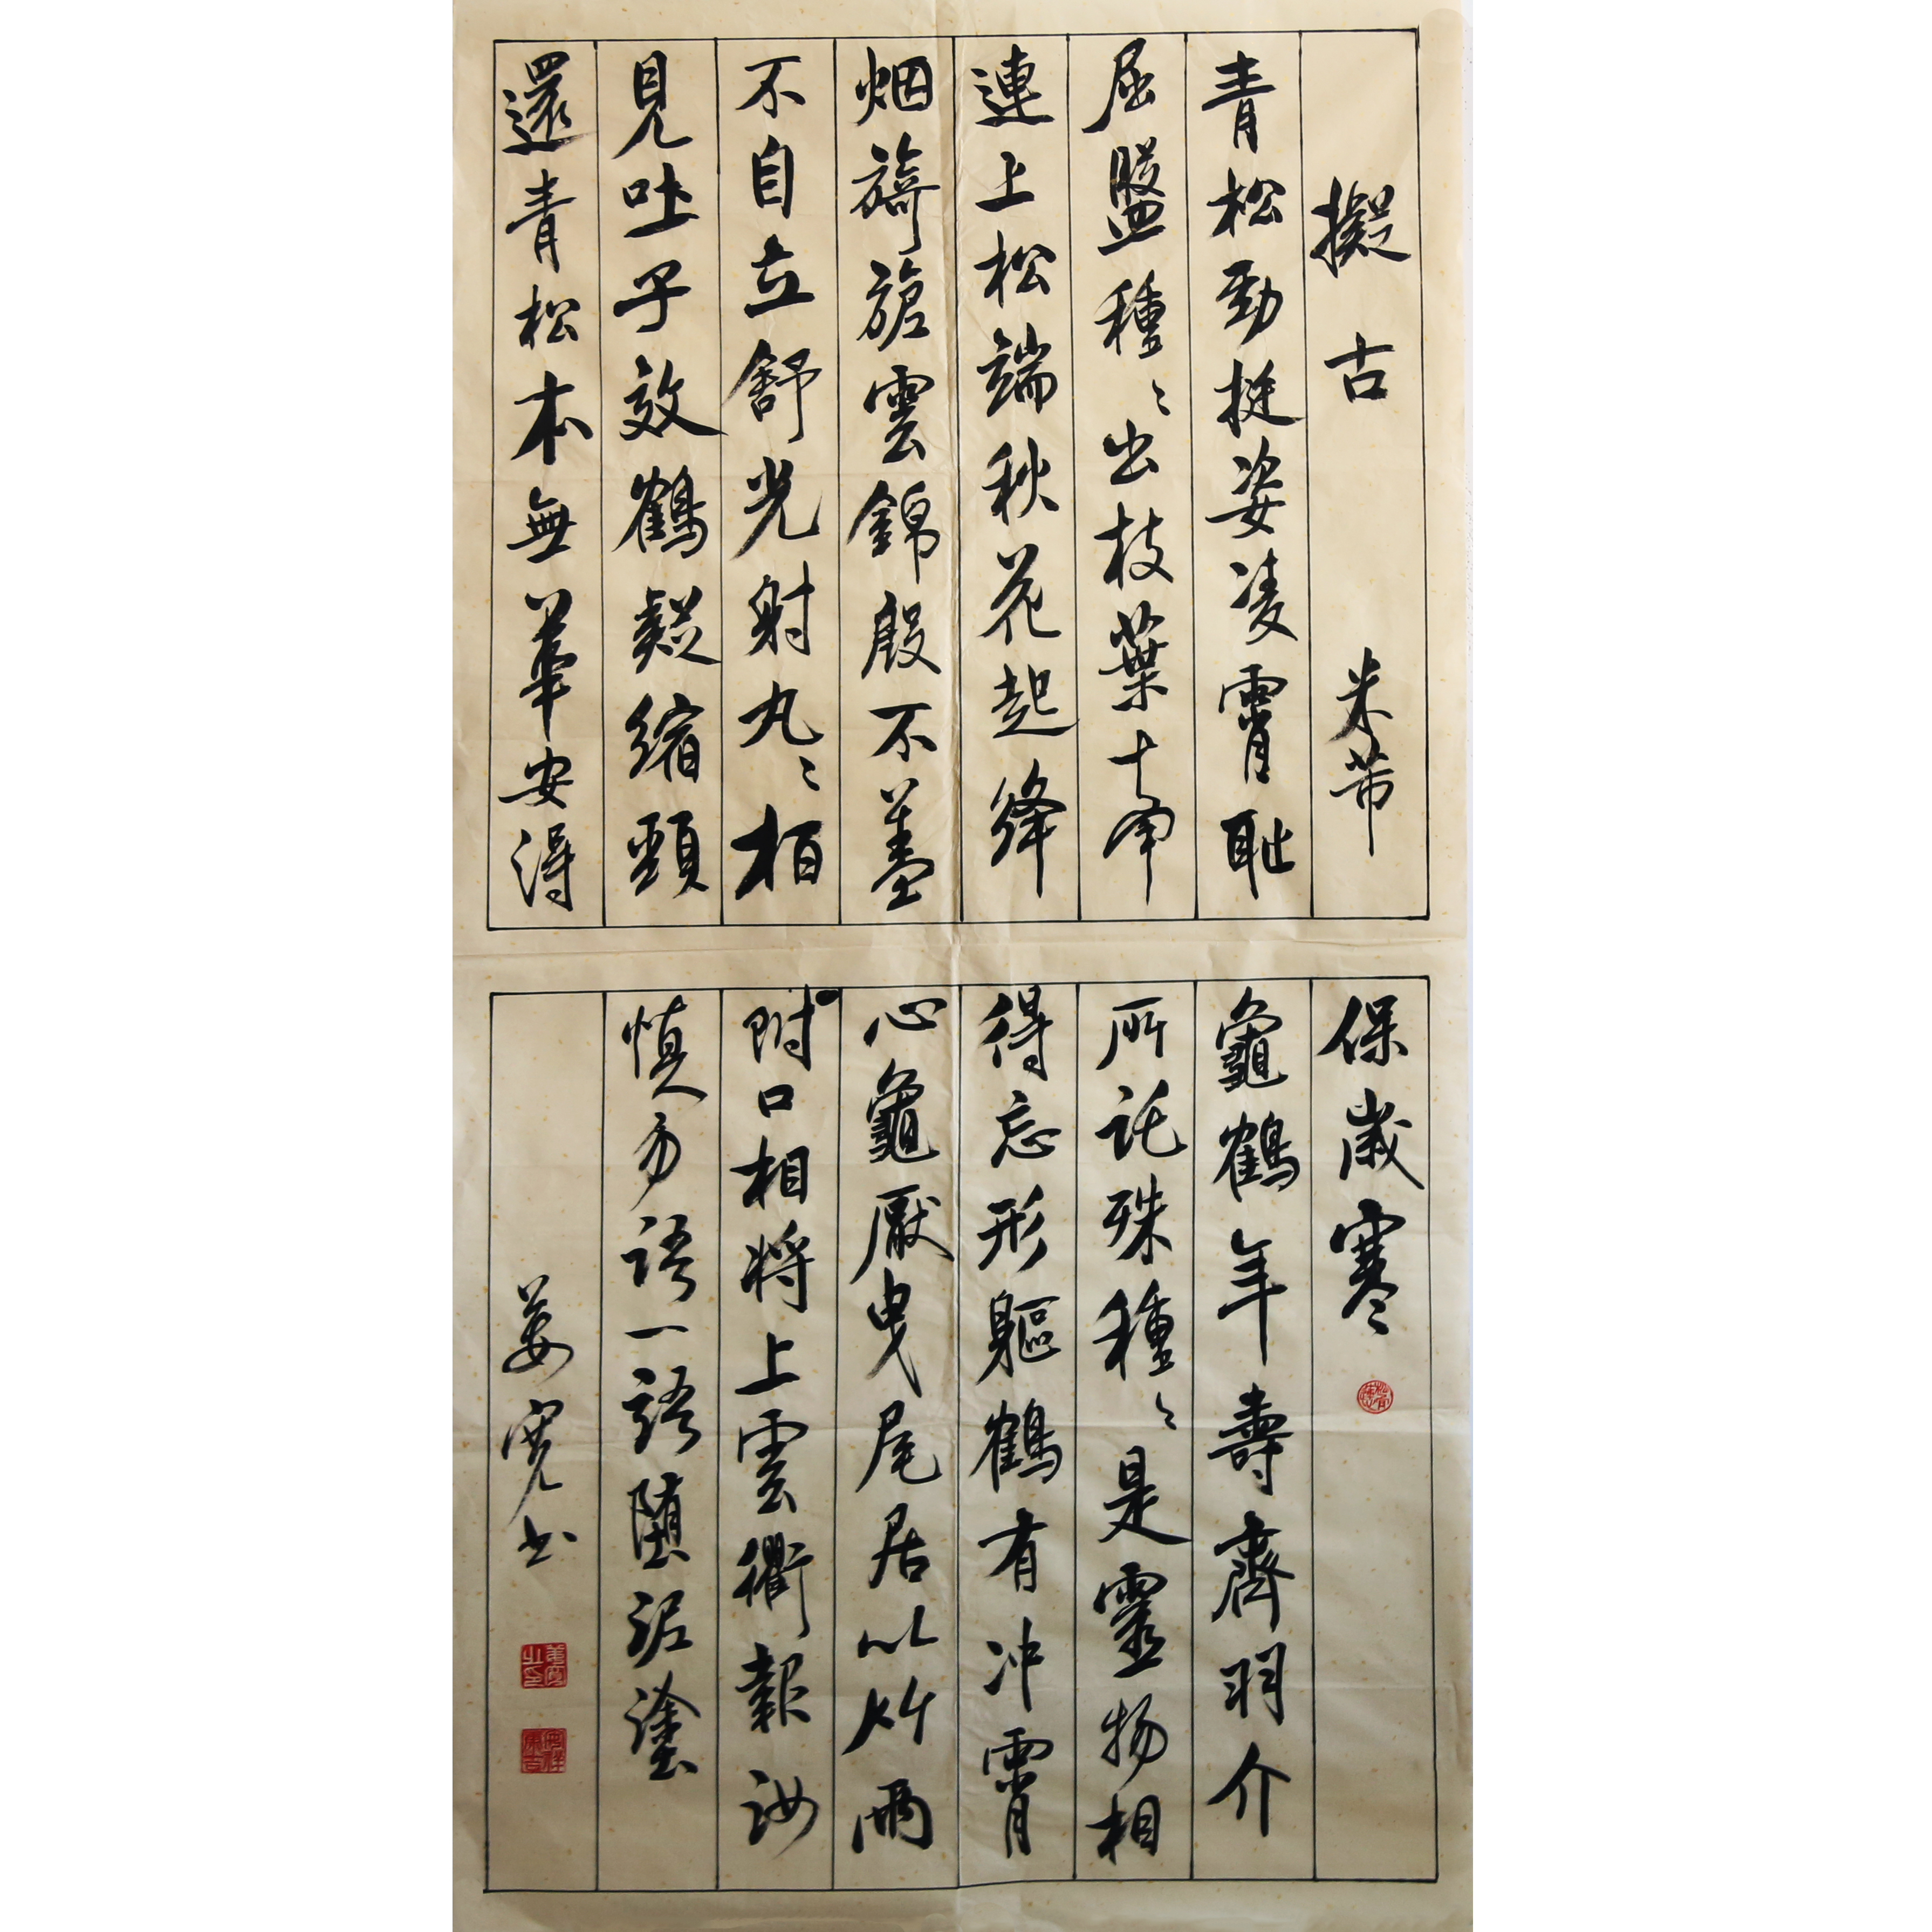 擬古 米芾
青松勁挺姿凌霄耻
屈盤種〻出枝葉牽
連上松端秋花起絳
烟旖旎雲錦殷不羞
不自立舒光射丸〻柏
見吐子效鶴疑縮頸
還青松本無華安得
保歲寒
龜鶴年壽齊羽介
所託殊種〻是靈物相
得忘形軀鶴有冲霄
心龜厭曳尾居以竹兩
附口相將上雲衢報汝
慎勿語一語墮泥塗
姜寬书